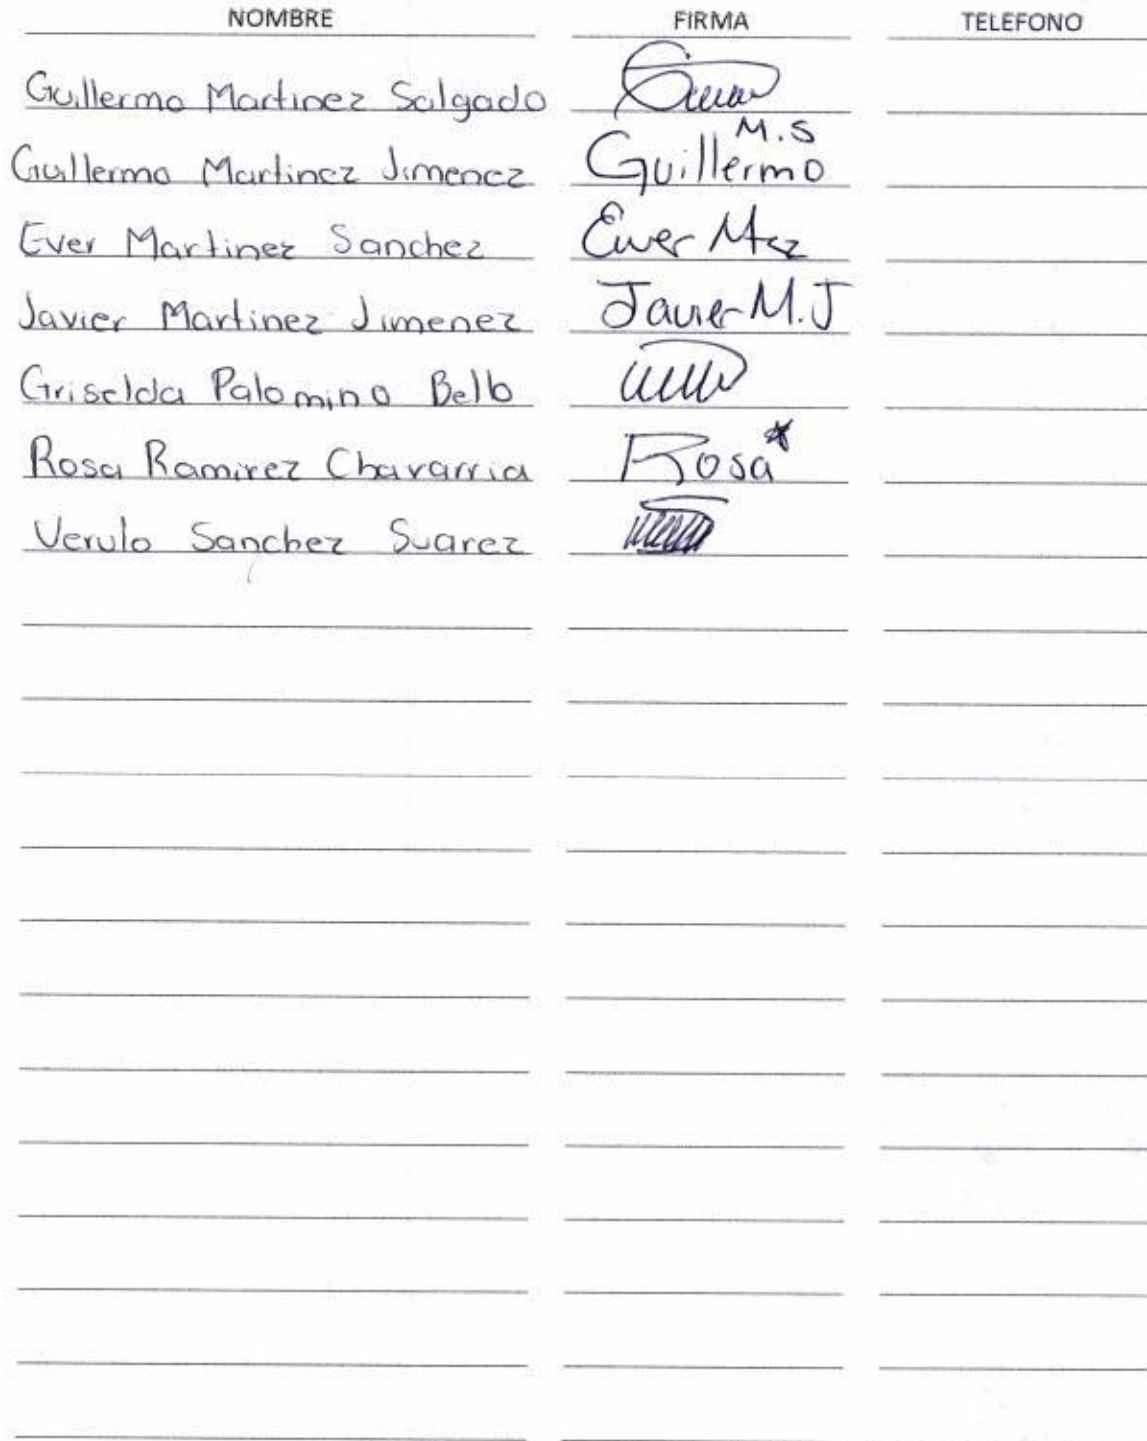 NOMBRE FIRMA TELEFONO
Guillermo Martinez Salgado
M.S
Guillermo Martinez Jimenez Guillermo
Ever Martinez Sanchez Ever Mtz
Javier Martinez Jimenez Javier M.J
Griselda Palomino Bello
Rosa Ramirez Chavarria Rosa
Verulo Sanchez Suarez